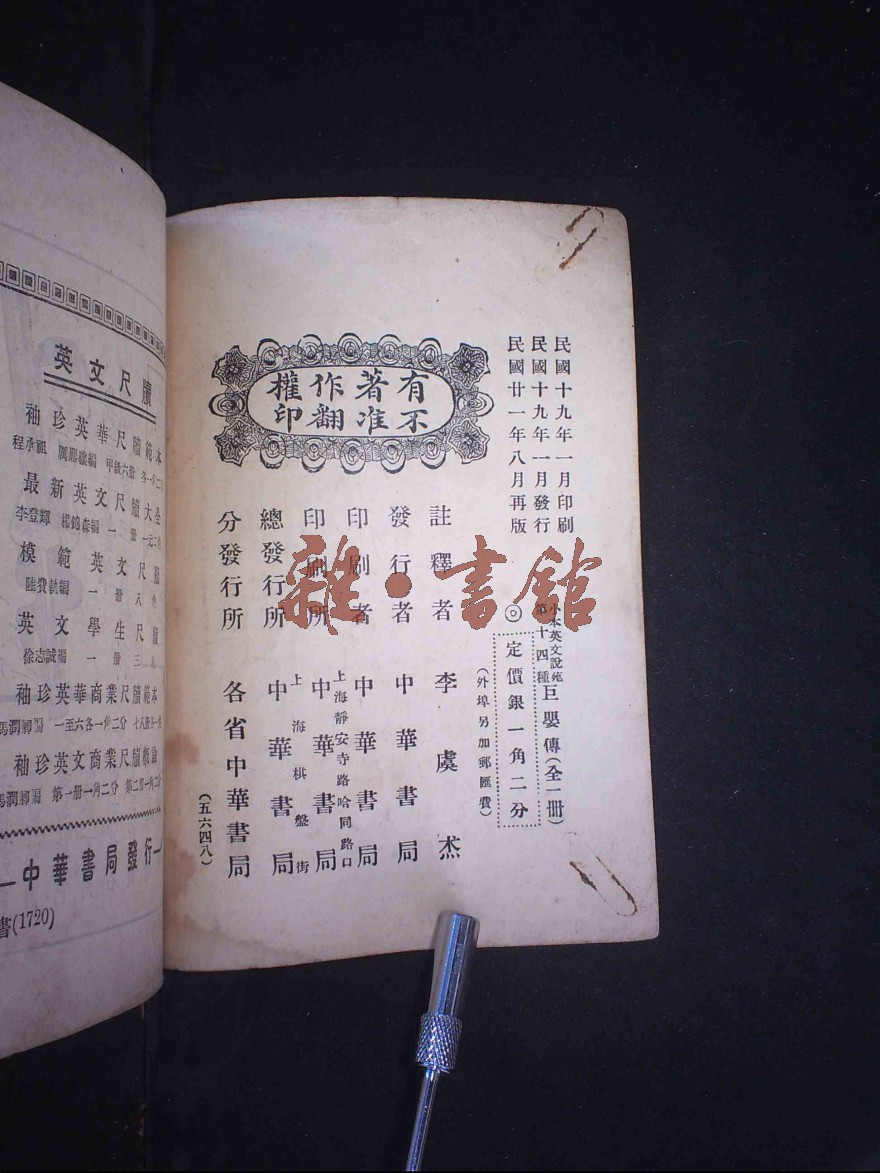 民國十九年一月印刷
民國十九年一月發行
民國廿一年八月再版
小本英文說苑第十四種 巨嬰傳(全一冊)
◎定價銀一角二分
(外埠另加郵匯費)
註釋者 李虞杰
發行者 中華書局
印刷者 中華書局
印刷所 上海靜安寺路哈同路口 中華書局
總發行所 上海棋盤街 中華書局
分發行所 各省中華書局
(五六四八)
有著作權
不准翻印
雜·書館
英文尺牘
袖珍英華尺牘範本
程承祖
甲級六冊
最新英文尺牘大全
李登輝 楊錦森編 一冊
模範英文尺牘
一冊
英文學生尺牘
徐志誠編 一冊
袖珍英華商業尺牘範本
馮潤卿編 一至六各一角二分
袖珍英文商業尺牘
馮潤卿編 第一冊一角二分
中華書局發行
書(1720)